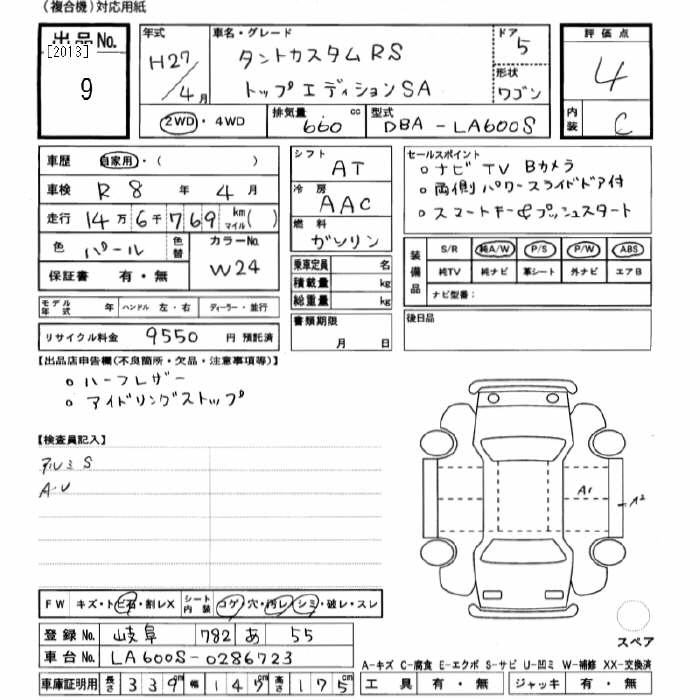 （複合機）対応用紙
出品No. [2013] 9
年式 H27/4月
車名・グレード タントカスタムRS トップエディションSA
ドア 5
形状 ワゴン
評価点 4
内装 C
2WD・4WD
排気量 660 cc
型式 DBA-LA600S
車歴 自家用・( )
車検 R 8 年 4 月
走行 14万6千769 km マイル( )
色 パール 色替
カラーNo. W24
保証書 有・無
モデル年式 年 ハンドル 左・右 ディーラー・並行
リサイクル料金 9550 円 預託済
シフト AT
冷房 AAC
燃料 ガソリン
乗車定員 名
積載量 kg
総重量 kg
書類期限 月 日
セールスポイント
○ナビ TV Bカメラ
○両側パワースライドドア付
○スマートキー&プッシュスタート
装備品 S/R 純A/W P/S P/W ABS
純TV 純ナビ 革シート 外ナビ エアB
ナビ型番：
後日品
【出品店申告欄(不良箇所・欠品・注意事項等)】
○ハーフレザー
○アイドリングストップ
【検査員記入】
アルミ S
A・U
FW キズ・トビ石・割レX シート内装 コゲ・穴・汚レ・シミ・破レ・スレ
登録No. 岐阜 782 あ 55
車台No. LA600S-0286723
車庫証明用 長さ 339cm 幅 147cm 高さ 175cm
A1
A2
スペア
A-キズ C-腐食 E-エクボ S-サビ U-凹ミ W-補修 XX-交換済
工具 有・無 ジャッキ 有・無